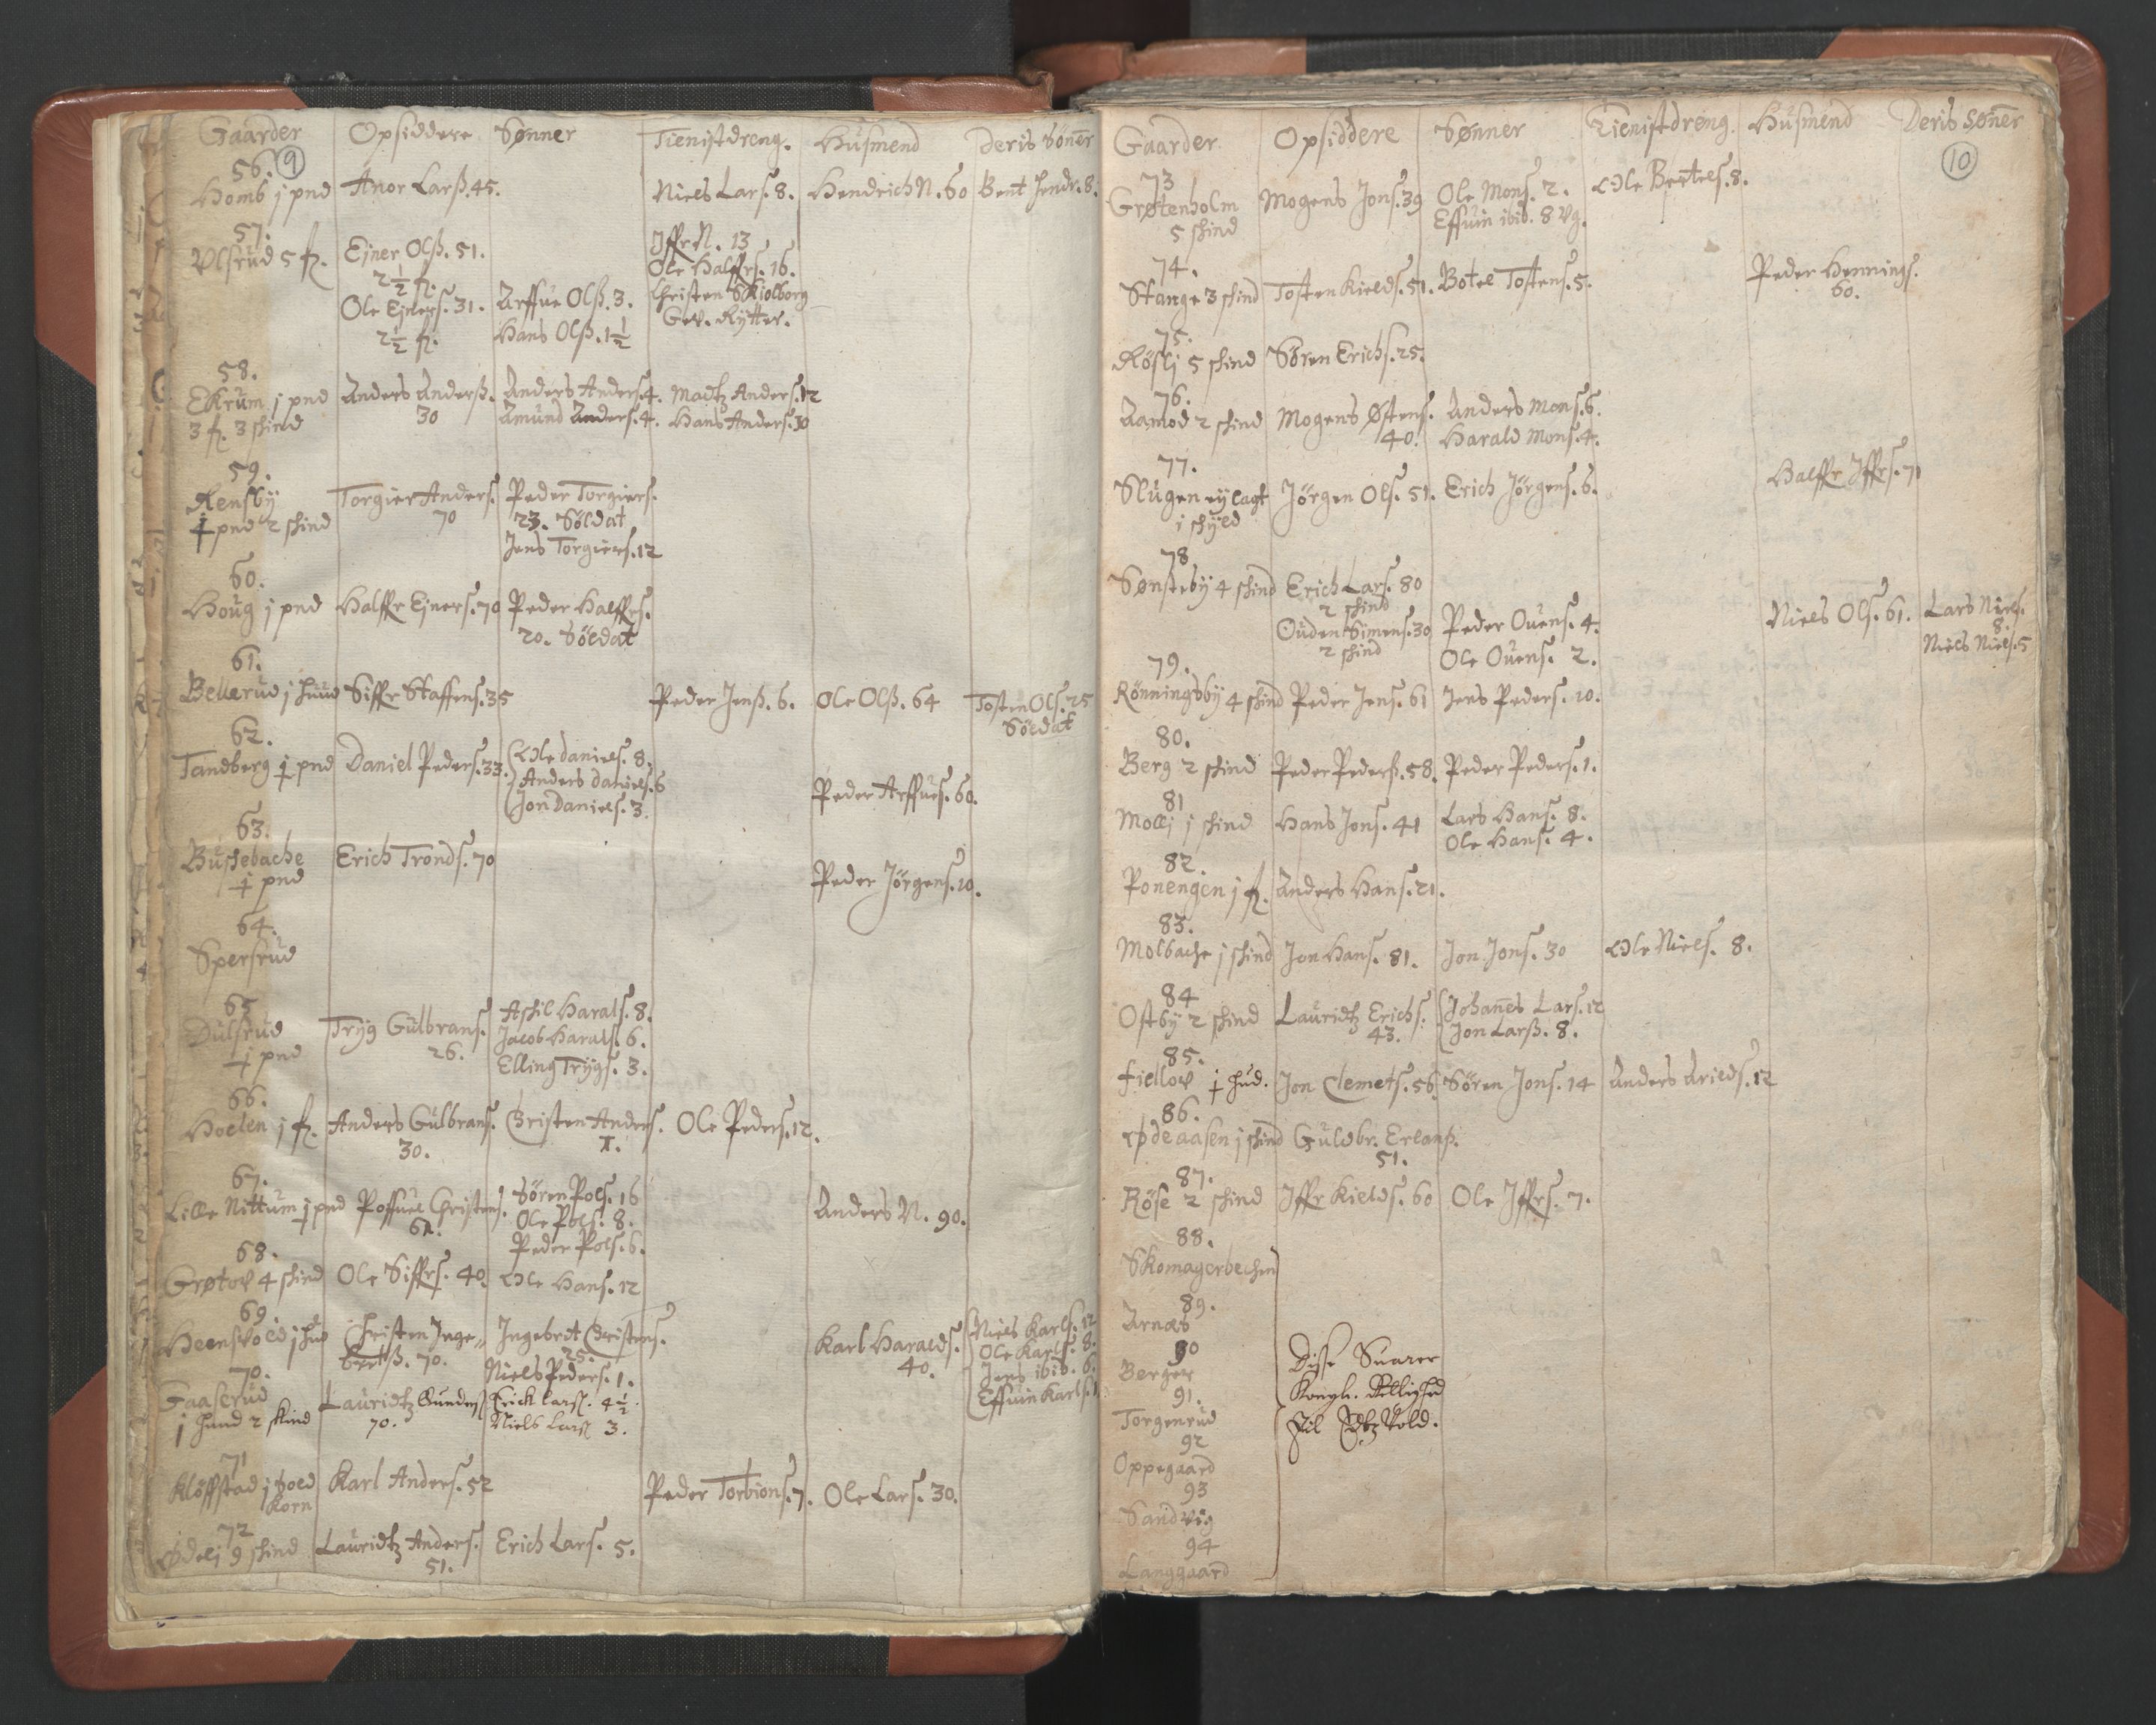 Gaarder Opsiddere Sønner Tienistdreng. Husmend Deris Söner
56. 9
Homb j pnd Anor Larß. 45. Niels Lars. 8. Hendrich N. 60 Bent Hendr. 8.
57.
Ulsrud 5 fz. Ejner Olß. 51. Iffr N. 13
2½ fz. Ole Halffrs. 16.
Ole Ejners. 31. Arffue Olß. 3. Christen Skiolborg
2½ fz. Hans Olß. 1½ Gev. Rytter.
58.
Ekrum j pnd Anders Anderß. Anders Anders. 4. Madtz Anders. 12
3 fz. 3 skind 30 Amund Anders. 4. Hans Anders. 10
59.
Rensby Torgier Anders. Peder Torgiers.
pnd 2 skind 70 23. Söldat
Jens Torgiers. 12
60.
Houg j pnd Halffr Ejners. 70 Peder Halffrs.
20. Söldat
61.
Bellerud j huud Siffr Staffens. 35 Peder Jenß. 6. Ole Olß. 64 Tosten Ols. 25
Söldat
62.
Tandberg j pnd Daniel Peders. 33. Ole daniels. 8.
Anders daniels. 6 Peder Arffues. 60.
Jon Daniels. 3.
63.
Buskebache Erich Tronds. 70
j pnd Peder Jörgens. 20.
64.
Spersrud
65
Dulsrud Tryg Gulbrans. Askil Harals. 8.
j pnd 26. Jacob Harals. 6.
Elling Trygs. 3.
66.
Hoelen j fz. Anders Gulbrans. Christen Anders. Ole Peders. 12.
30. 1.
67.
Lille Nittum j pnd Poffuel Christens. Sören Pols. 16 Anders N. 90.
Ole Pols. 8.
Peder Pols. 6.
68.
Grøtov 4 skind Ole Siffrs. 40. Ole Hans. 12
69
Heensvold j hud Christen Inge- Ingebret Christens. Karl Haralds. Niels Karls. 12
bertß. 70. 25. 40. Ole Karls. 8.
Niels Peders. 1. Jens ibid. 6.
Effuin Karls. 1
70.
Gaaserud Lauridtz Gunders Erick Lars. 4½.
j huud 2 skind 70. Niels Lars 3.
71
Klöffstad j sold Karl Anders. 52 Peder Torbions. 7. Ole Lars. 30.
Korn
72
rødelj 9 skind Lauridtz Anders. Erich Lars. 5.
51.
Gaarder Opsiddere Sønner Tienistdreng. Husmend Deris Søner
10
73
Grøtenholm Mogens Jons. 39 Ole Mons. 2. Ole Bertels. 8.
5 skind Effuin ibid. 8 Vg.
74.
Stange 3 skind Tosten Kields. 51. Botel Tostens. 5. Peder Hennings.
60.
75.
Rösli 5 skind Sören Erichs. 25.
76.
Aamod 2 skind Mogens Østens. Anders Mons. 6.
40. Harald Mons. 4.
77.
Slugen eylagt Jörgen Ols. 51. Erich Jörgens. 6. Halffr Iffrs. 71
i skyld
78
Sønsteby 4 skind Erich Lars. 80
2 skind
Ouden Simens. 30 Peder Ouens. 4. Niels Ols. 61. Lars Niels.
2 skind 8.
Ole Ouens. 2. Niels Niels. 5
79.
Rønningsby 4 skind Peder Jens. 61 Jens Peders. 20.
80.
Berg 2 skind Peder Pederß. 58. Peder Peders. 1.
81
Molli j skind Hans Jons. 41 Lars Hans. 8.
Ole Hans. 4.
82.
Ponengen j fz. Anders Hans. 21.
83.
Molbache j skind Jon Hans. 81. Jon Jons. 30 Ole Niels. 8.
84
Ostby 2 skind Lauridtz Erichs. Johanes Lars. 12
43. Jon Larß. 8.
85.
fiellov j hud. Jon Clemets. 56. Søren Jons. 14 Anders Arields. 12
86.
rødeaasen j skind Guldbr. Erlanß.
51.
87.
Röse 2 skind Iffr Kields. 60 Ole Iffrs. 7.
88.
Skomagerbechen
89.
Arnæs
90
Berger Disse Suarer
91. Kongl.
Torgenrud Til
92
Oppegaard
93
Sandvig
94
Langgaard